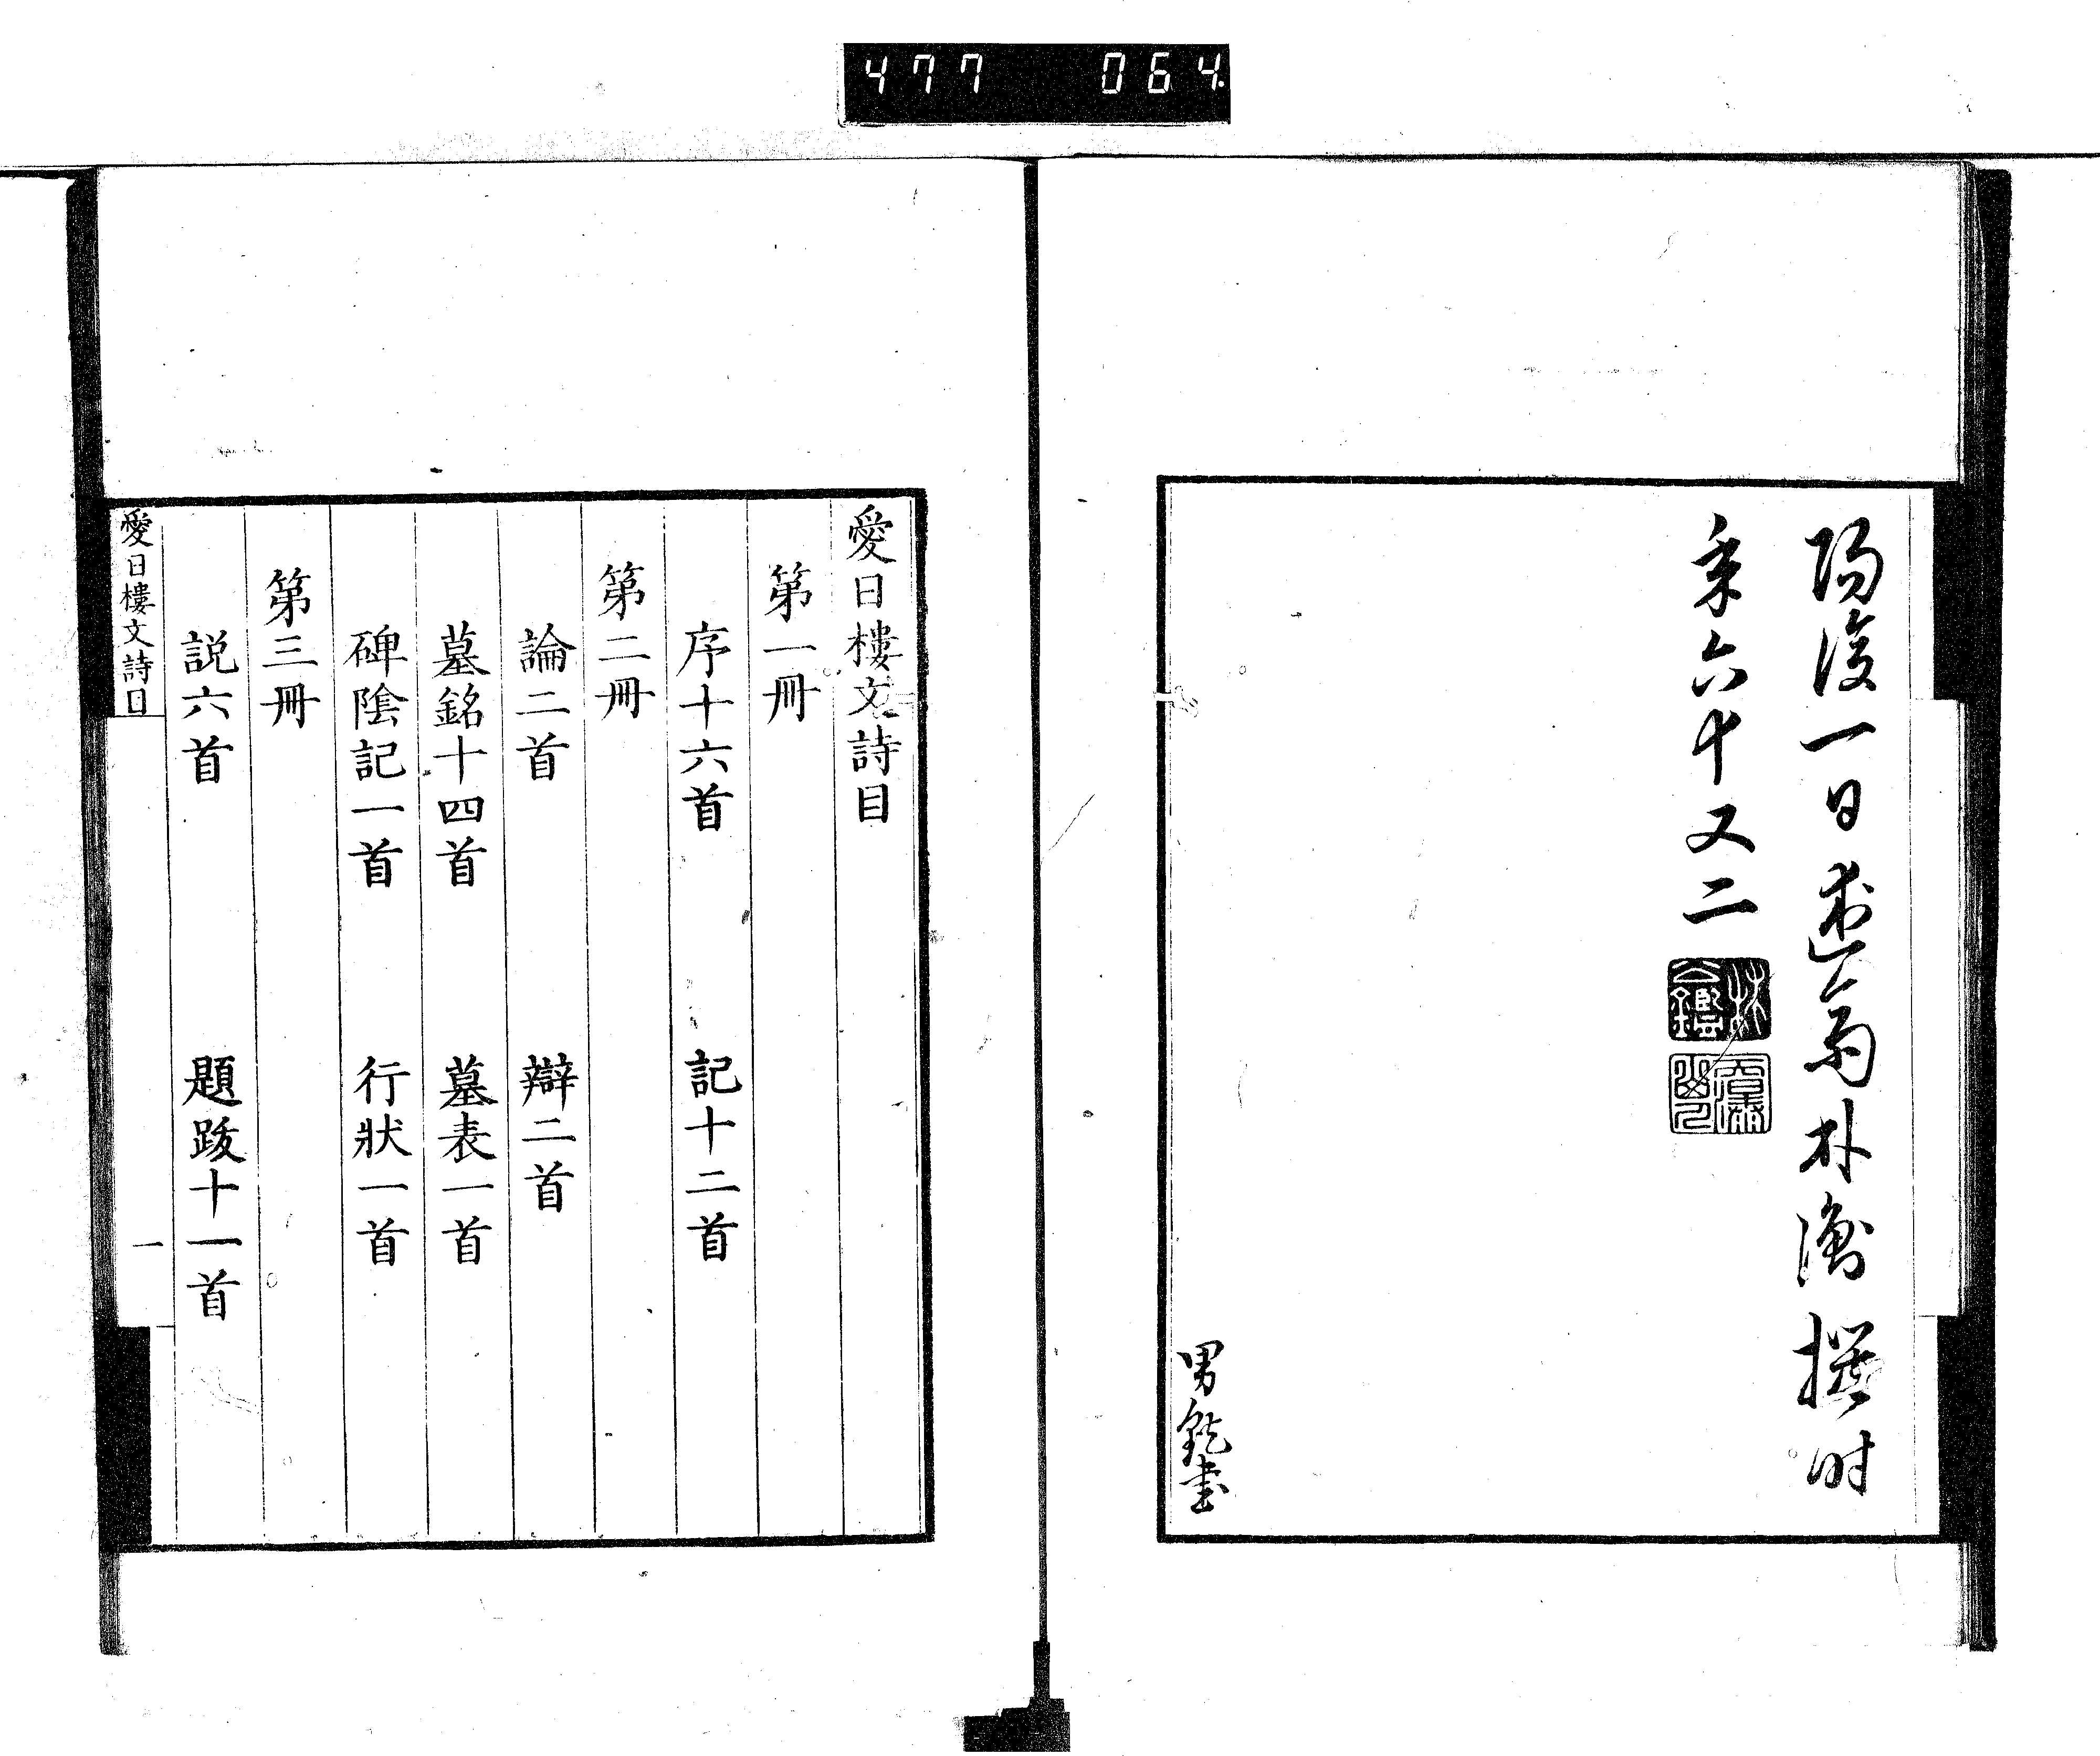 477 064
陽復一日述齋林衡撰時
年六十又二
男𬬩書
愛日樓文詩目
第一冊
序十六首 記十二首
第二冊
論二首 辯二首
墓銘十四首 墓表一首
碑陰記一首 行狀一首
第三冊
説六首 題跋十一首
愛日樓文詩目 一